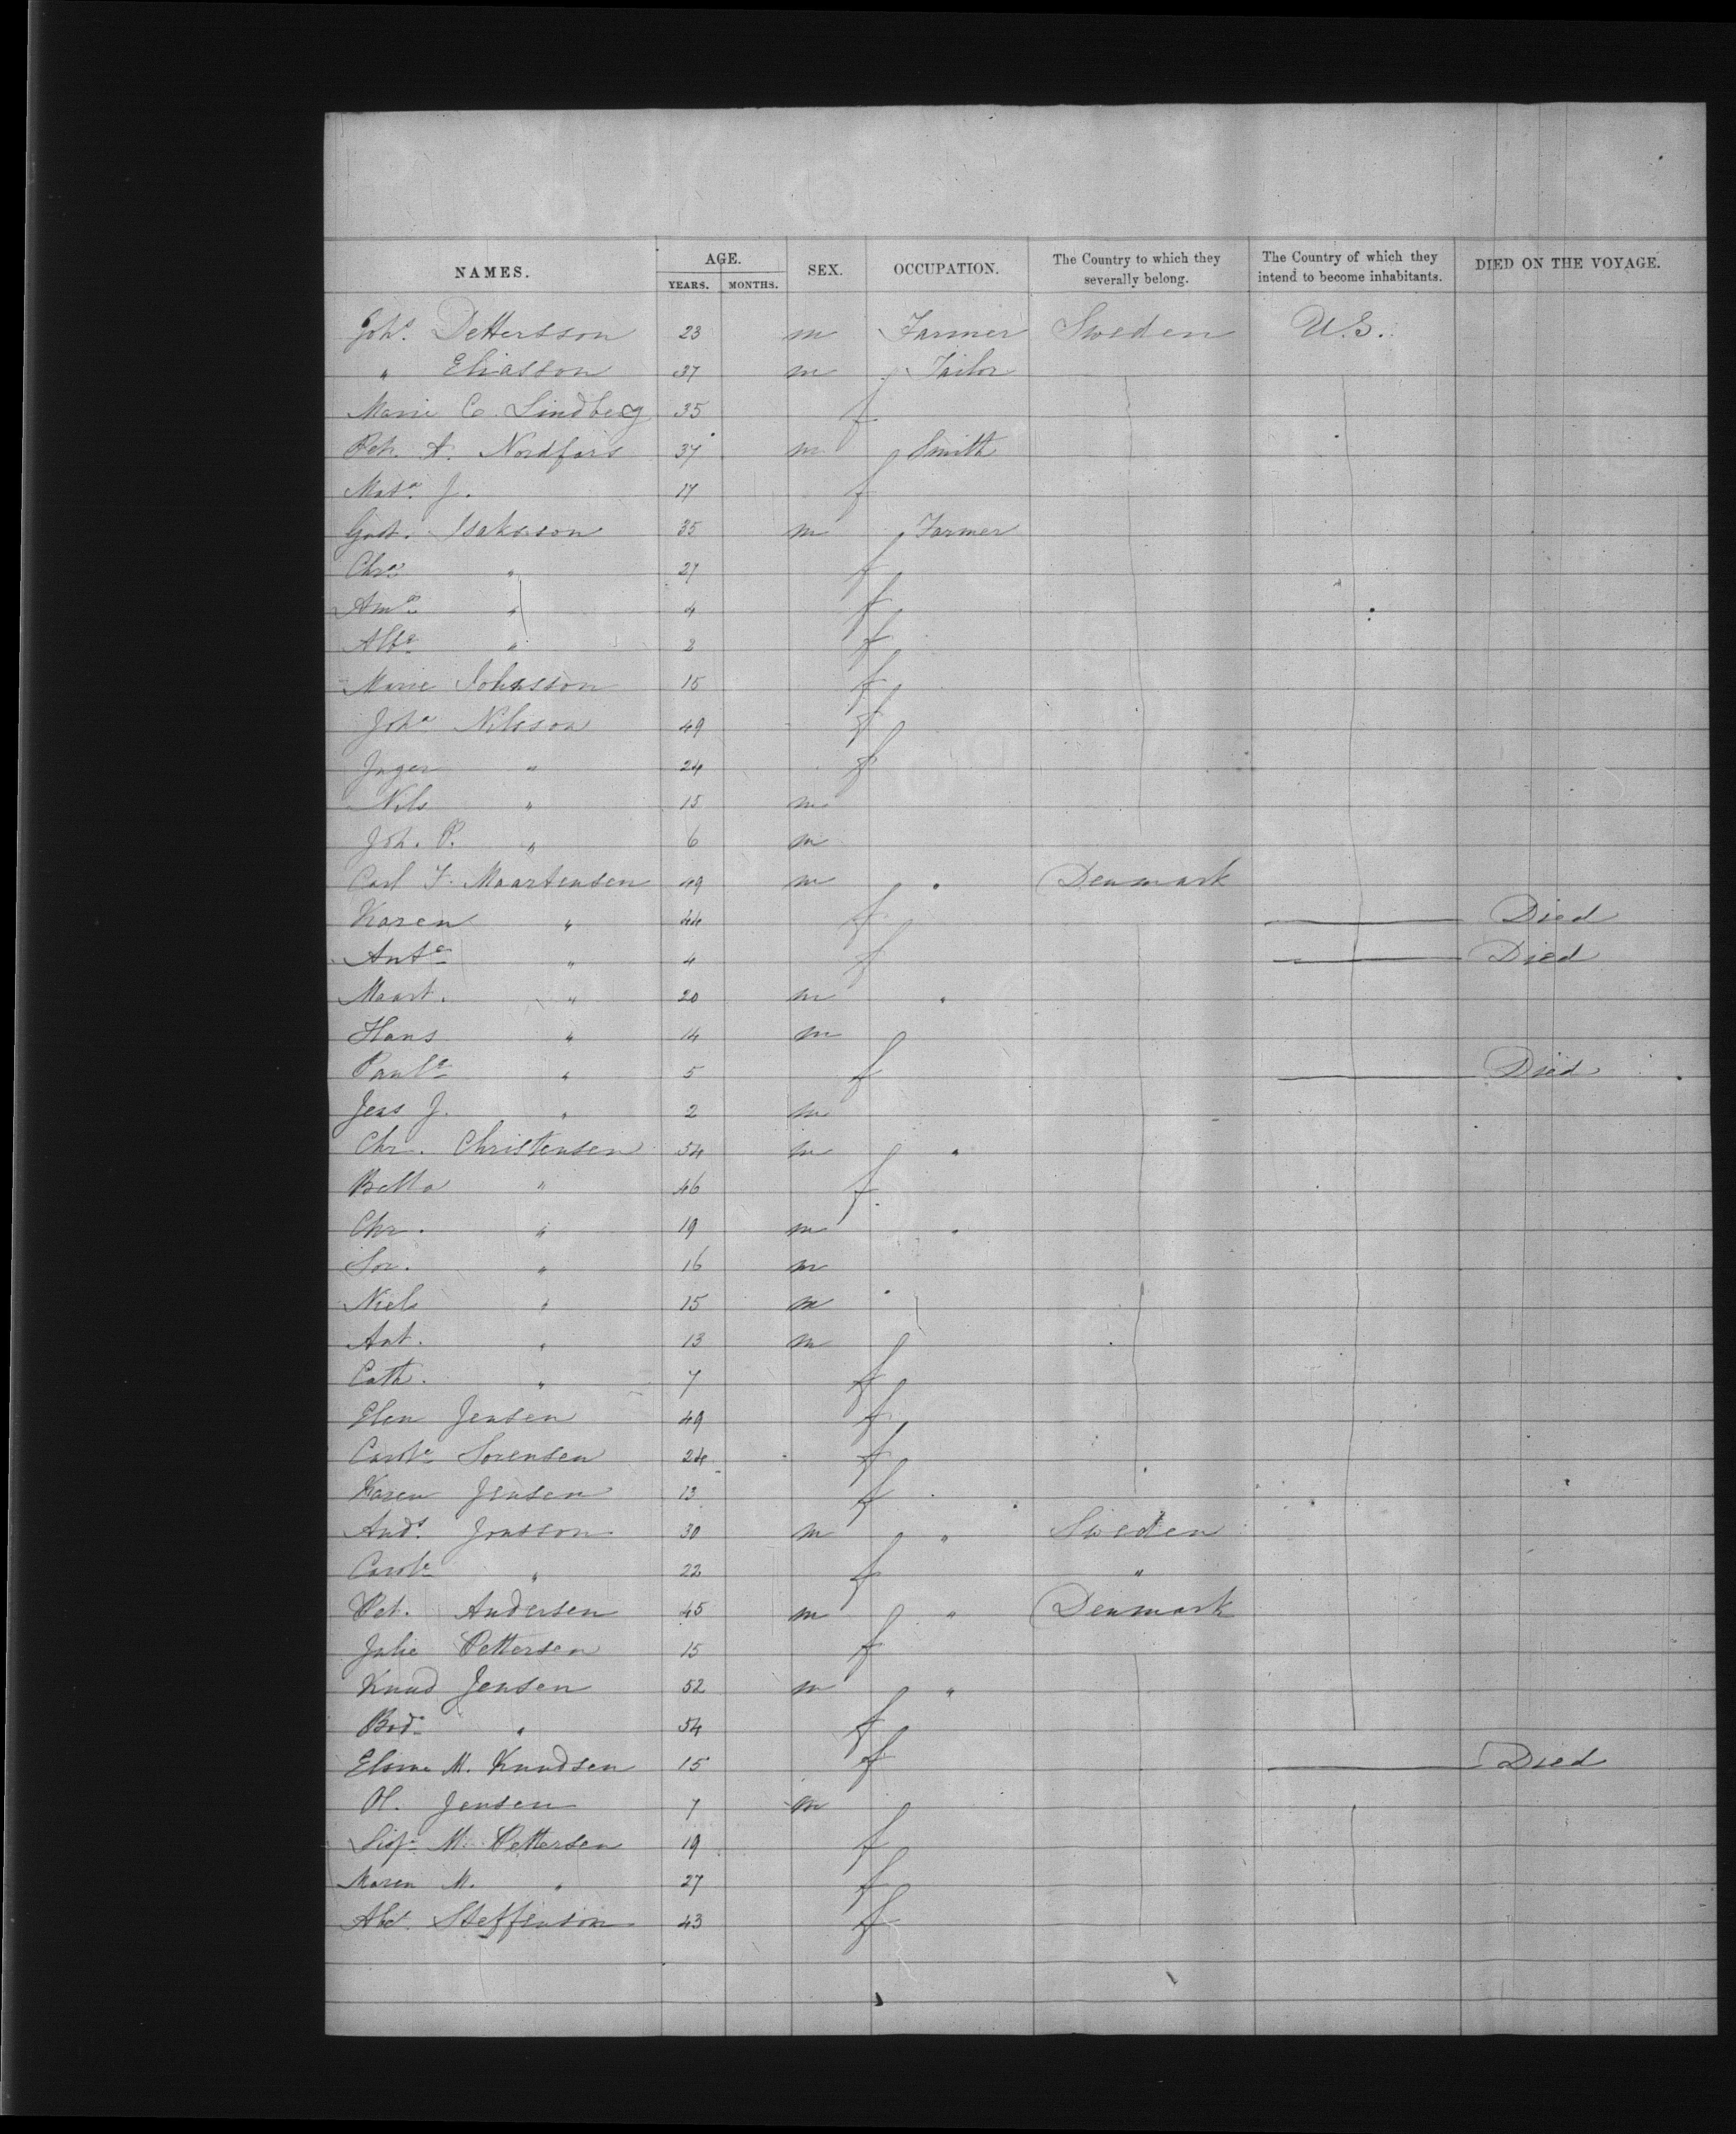 NAMES. AGE. YEARS. MONTHS. SEX. OCCUPATION. The Country to which they severally belong. The Country of which they intend to become inhabitants. DIED ON THE VOYAGE.
Johs. Pettersson 23 m Farmer Sweden U.S.
" Eliasson 37 m Tailor
Marie C. Lindberg 35 f
Pet. A. Nordfors 37 m Smith
J. 17 f
Gust. Isaksson 35 m Farmer
Chra " 27 f
" 4 f
Alba " 2 f
Marie Johnsson 15 f
Joha Nilsson 49 f
Inger " 24 f
Nils " 15 m
Joh. P. " 6 m
Carl F. Maartensen 49 m " Denmark
Karen " 44 f Died
Anta " 4 f Died
Maart. " 20 m "
Hans " 14 m
Paula " 5 f Died
Jens J. " 2 m
Chr. Christensen 54 m "
" 46 f
Chr. " 19 m "
Sor. " 16 m
Niels " 15 m
Ant. " 13 m
Cath. " 7 f
Elen Jensen 49 f
Carole Sorensen 24 f
Karen Jensen 13 f
Ands. Jonsson 30 m " Sweden
Carole " 22 f "
Pet. Andersen 45 m " Denmark
Julie Pettersen 15 f
Knud Jensen 52 m "
Bod. " 54 f
M. Knudsen 15 f Died
Jensen 7 m
M. Pettersen 19 f
Maren M. " 27 f
Steffenson 43 f